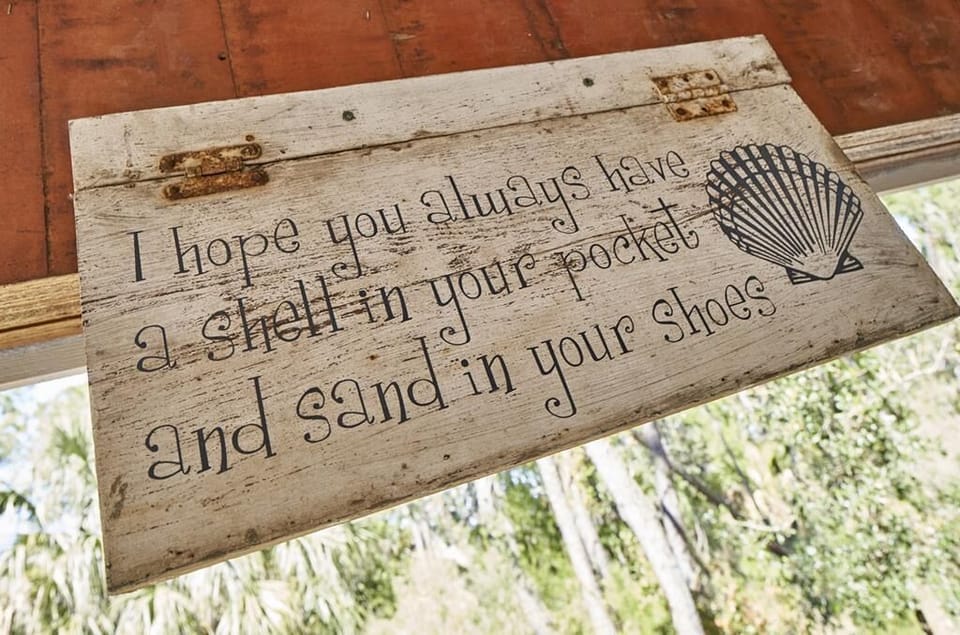 I hope you always have
a shell in your pocket
and sand in your shoes